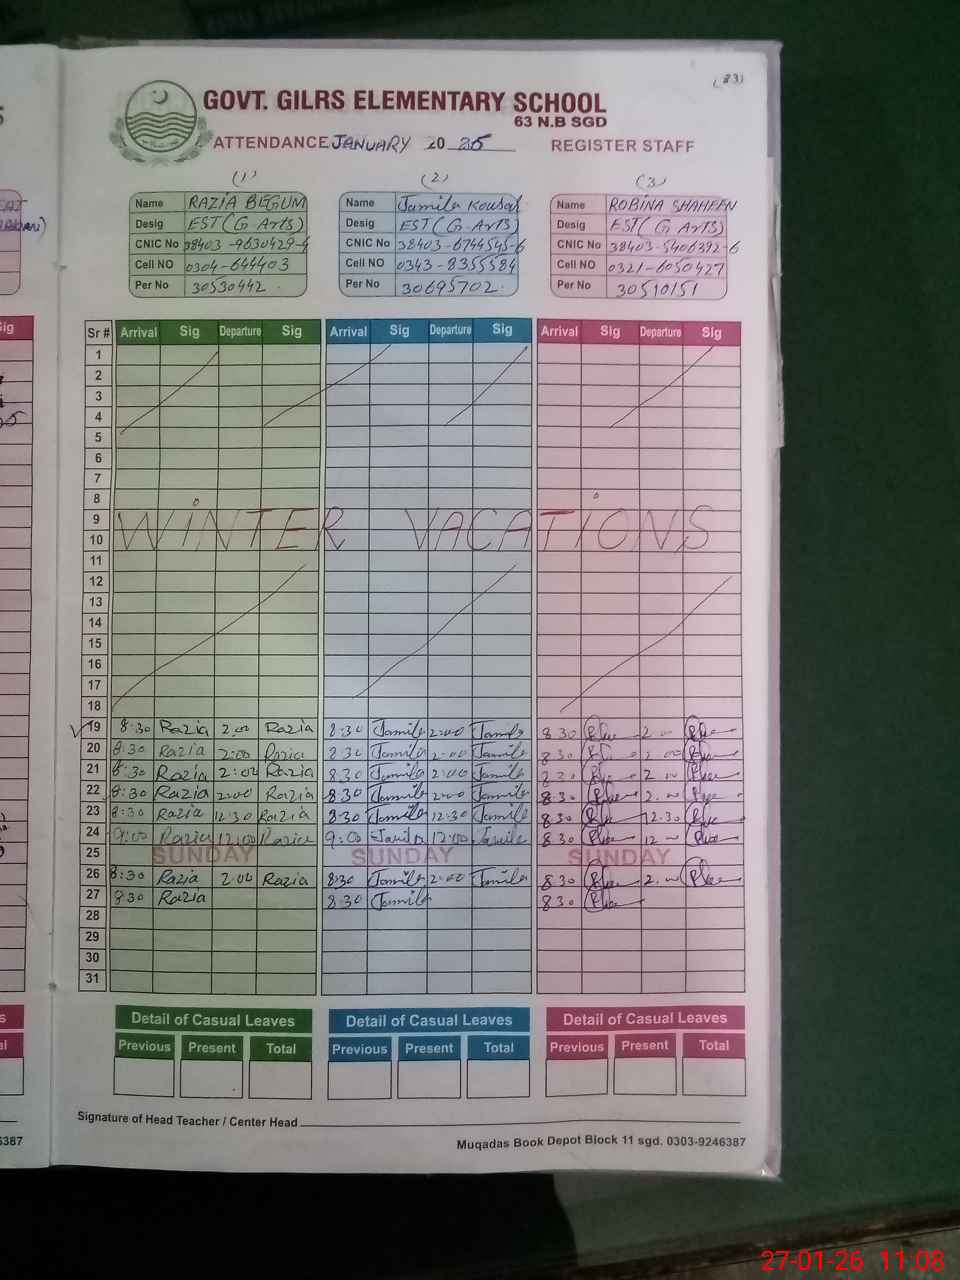 (83)
GOVT. GILRS ELEMENTARY SCHOOL
63 N.B SGD
ATTENDANCE JANUARY 20 26 REGISTER STAFF
(1) (2) (3)
Name RAZIA BEGUM Name Jamila Kousar Name ROBINA SHAHEEN
Desig EST(G Arts) Desig EST(G.Arts) Desig EST(G Arts)
CNIC No 38403-9630429-4 CNIC No 38403-6744545-6 CNIC No 38403-5406392-6
Cell NO 0304-644403 Cell NO 0343-8355584 Cell NO 0321-6050427
Per No 30530442 Per No 30695702 Per No 30510151
Sr # Arrival Sig Departure Sig Arrival Sig Departure Sig Arrival Sig Departure Sig
1
2
3
4
5
6
7
8
9
WiNTER VACATiONS
10
11
12
13
14
15
16
17
18
19 8:30 Razia 2:00 Razia 8:30 Jamila 2:00 Jamila 8 30 2 00
20 8:30 Razia 2:00 Razia 8:30 Jamila 2:00 Jamila 8 30 2 00
21 8:30 Razia 2:00 Razia 8:30 Jamila 2:00 Jamila 8 30 2 00
22 8:30 Razia 2:00 Razia 8:30 Jamila 2:00 Jamila 8:30 2.00
23 8:30 Razia 12:30 Razia 8:30 Jamila 12:30 Jamila 8 30 12.30
24 9:00 Razia 12:00 Razia 9:00 Jamila 12:00 Jamila 8 30 12 00
25 SUNDAY SUNDAY SUNDAY
26 8:30 Razia 2:00 Razia 8:30 Jamila 2:00 Jamila 8 30 2.00
27 8:30 Razia 8:30 Jamila 8 30
28
29
30
31
Detail of Casual Leaves Detail of Casual Leaves Detail of Casual Leaves
Previous Present Total Previous Present Total Previous Present Total
Signature of Head Teacher / Center Head
Muqadas Book Depot Block 11 sgd. 0303-9246387
27-01-26 11:08